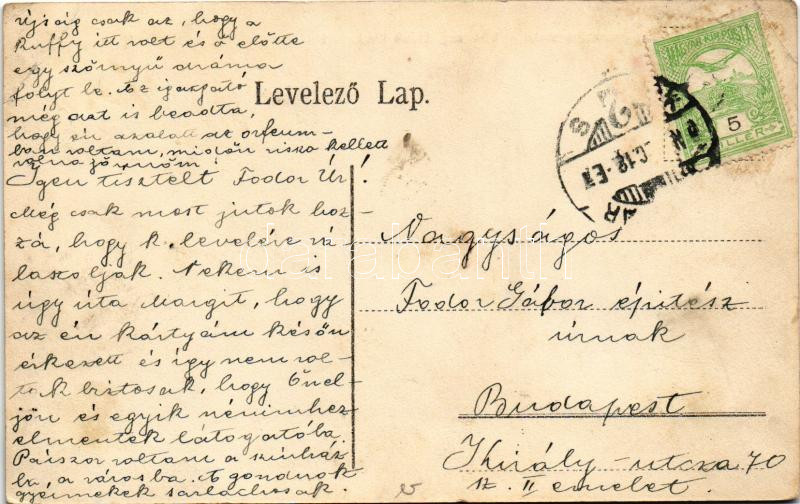 Újság csak az, hogy a
Ruffy itt volt és a előtte
egy szörnyű dráma
folyt le. Az igazgató
még azt is beadta,
hogy én azalatt az orfeum-
ban voltam, midőn vissza kellett
volna jönnöm!
Igen tisztelt Fodor Úr!
Még csak most jutok hoz-
zá, hogy k. levelére vá
laszoljak. Nekem is
úgy írta Margit, hogy
az én kártyám későn
érkezett és így nem vol-
tak biztosak, hogy Önel-
jön és egyik nénimhez
elmentek látogatóba.
Pászor voltam a színház
ba, a városba. A gondnok
gyermekek
Levelező Lap.
MAGYAR KIR. POSTA
5
FILLÉR
Nagyságos
Fodor Gábor építész
úrnak
Budapest
Király-utcza 70
sz. II emelet.
darabanth